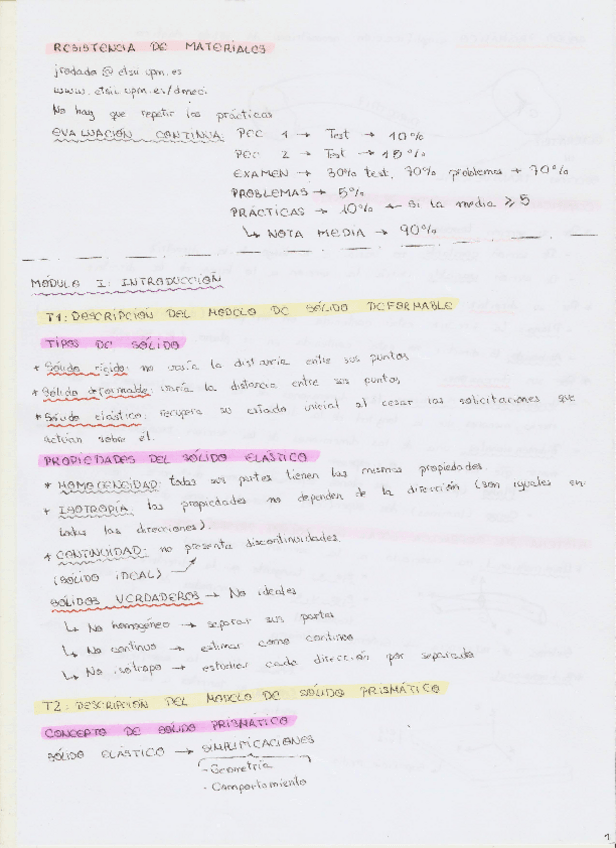 RESISTENCIA DE MATERIALES
jrodada@etsii.upm.es
www.etsii.upm.es/dmeci
No hay que repetir las prácticas
EVALUACIÓN CONTINUA: PEC 1 → Test → 10%
PEC 2 → Test → 15%
EXAMEN → 30% test, 70% problemas → 70%
PROBLEMAS → 5%
PRÁCTICAS → 10% ← Si la media ≥ 5
↳ NOTA MEDIA → 90%
MÓDULO I: INTRODUCCIÓN
T1: DESCRIPCIÓN DEL MODELO DE SÓLIDO DEFORMABLE
TIPOS DE SÓLIDO
* Sólido rígido: no varía la distancia entre sus puntos
* Sólido deformable: varía la distancia entre sus puntos
* Sólido elástico: recupera su estado inicial al cesar las solicitaciones que
actúan sobre él.
PROPIEDADES DEL SÓLIDO ELÁSTICO
* HOMOGENEIDAD: todas sus partes tienen las mismas propiedades.
* ISOTROPÍA: las propiedades no dependen de la dirección (son iguales en
todas las direcciones).
* CONTINUIDAD: no presenta discontinuidades.
(SÓLIDO IDEAL)
SÓLIDOS VERDADEROS → No ideales
↳ No homogéneo → separar sus partes
↳ No continuo → estimar como continuo
↳ No isótropo → estudiar cada dirección por separado
T2: DESCRIPCIÓN DEL MODELO DE SÓLIDO PRISMÁTICO
CONCEPTO DE SÓLIDO PRISMÁTICO
SÓLIDO ELÁSTICO → SIMPLIFICACIONES
- Geometría
- Comportamiento
1